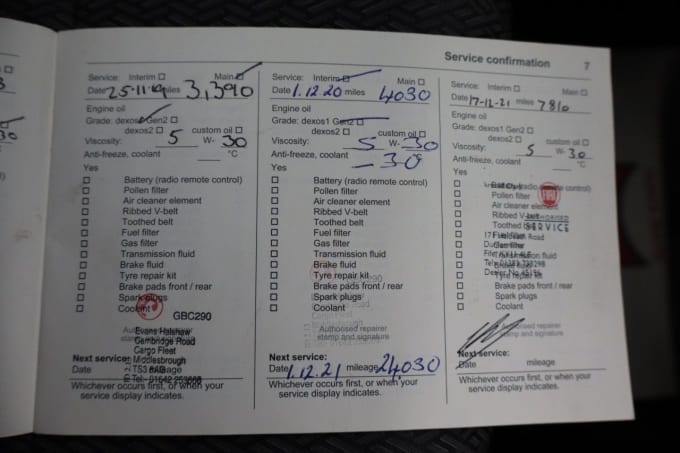 Service confirmation 7
Service: Interim Main
Date 25-11-19 miles 3,1390
Engine oil
Grade: dexos1 Gen2
dexos2 custom oil
Viscosity: 5 W- 30
Anti-freeze, coolant °C
Yes
Battery (radio remote control)
Pollen filter
Air cleaner element
Ribbed V-belt
Toothed belt
Fuel filter
Gas filter
Transmission fluid
Brake fluid
Tyre repair kit
Brake pads front / rear
Spark plugs
Coolant
GBC290
Evans Halshaw
Cambridge Road
Cargo Fleet
Next service: Middlesbrough
Date TS3 8AG mileage
Tel: 01642 253888
Whichever occurs first, or when your
service display indicates.
Service: Interim Main
Date 1.12.20 miles 4030
Engine oil
Grade: dexos1 Gen2
dexos2 custom oil
Viscosity: 5 W- 30
Anti-freeze, coolant -30°
Yes
Battery (radio remote control)
Pollen filter
Air cleaner element
Ribbed V-belt
Toothed belt
Fuel filter
Gas filter
Transmission fluid
Brake fluid
Tyre repair kit
Brake pads front / rear
Spark plugs
Coolant
Authorised repairer
stamp and signature
Next service:
Date 1.12.21 mileage 24030
Whichever occurs first, or when your
service display indicates.
Service: Interim Main
Date 17-12-21 miles 7810
Engine oil
Grade: dexos1 Gen2
dexos2 custom oil
Viscosity: 5 W- 30
Anti-freeze, coolant °C
Yes
Battery (radio remote control)
Pollen filter
Air cleaner element
Ribbed V-belt
AUTHORISED
Toothed belt
SERVICE
Fuel filter
Road
Gas filter
Transmission fluid
Brake fluid
Tyre repair kit
Brake pads front / rear
Spark plugs
Coolant
Authorised repairer
stamp and signature
Next service:
Date mileage
Whichever occurs first, or when your
service display indicates.